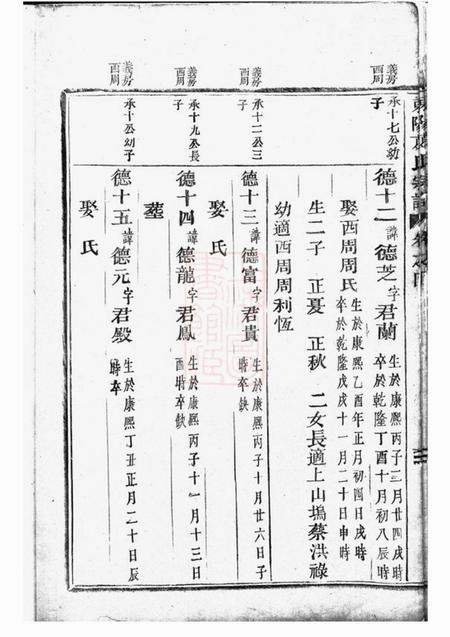 義房
西周
承十七公幼
子
德十二諱德芝字君蘭
生於康熙丙子三月廿四戌時
卒於乾隆丁酉十月初八辰時
娶西周周氏
生於康熙乙酉年正月初四日戌時
卒於乾隆戊戌十一月二十日申時
生二子 正夏 正秋 二女長適上山塢蔡洪祿
幼適西周周利恆
義房
西周
承十二公三
子
德十三諱德富字君貴
生於康熙丙子十月廿六日子
時卒缺
娶氏
義房
西周
承十九公長
子
德十四諱德龍字君鳳
生於康熙丙子十一月十三日
酉時卒缺
葬
義房
西周
承十公幼子
德十五諱德元字君殿
生於康熙丁丑正月二十日辰
時卒
娶氏